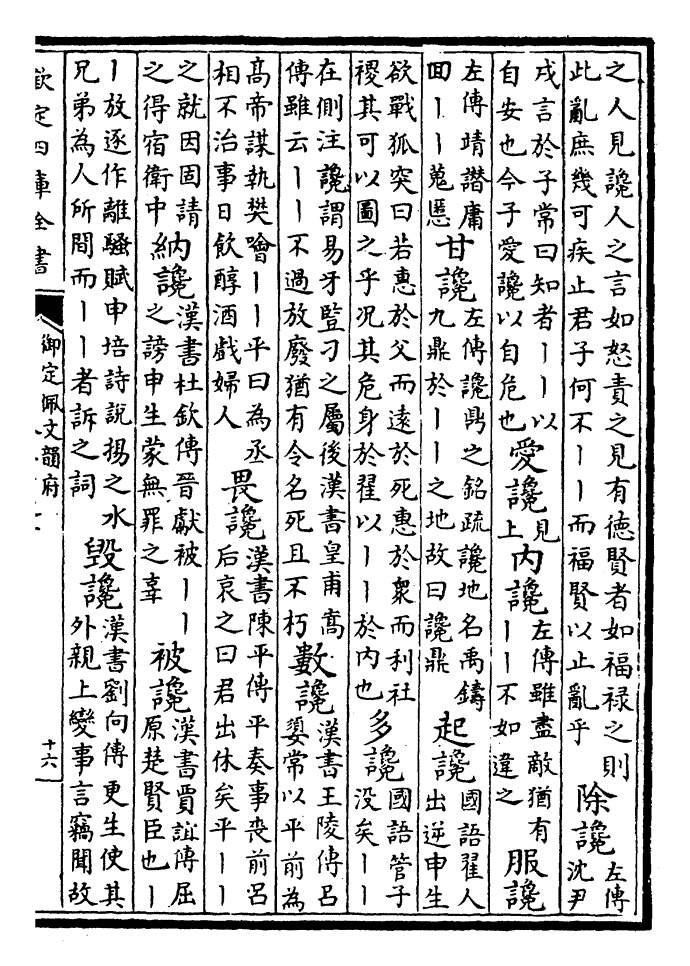 之人見讒人之言如怒責之見有徳賢者如福禄之則此亂庶幾可疾止君子何不丨丨而福賢以止亂乎 除讒 左傳沈尹
戌言於子常曰知者丨丨以自安也今子愛讒以自危也 愛讒 見上 内讒 左傳雖盡敵猶有丨丨不如違之 服讒
左傳靖譖庸囬丨丨蒐慝 甘讒 左傳讒鼎之銘疏讒地名禹鑄九鼎於丨丨之地故曰讒鼎 起讒 國語翟人出逆申生
欲戰狐突曰若惠於父而遠於死惠於衆而利社稷其可以圖之乎况其危身於翟以丨丨於内也 多讒 國語管子没矣丨丨
在側注讒謂易牙豎刁之屬後漢書皇甫嵩傳雖云丨丨不過放廢猶有令名死且不朽 數讒 漢書王陵傳吕嬃常以平前為
髙帝謀執樊噲丨丨平曰為丞相不治事日飲醇酒戲婦人 畏讒 漢書陳平傳平奏事喪前吕后哀之曰君出休矣平丨丨
之就因固請之得宿衛中 納讒 漢書杜欽傳晉獻被丨丨之謗申生蒙無罪之辜 被讒 漢書賈誼傳屈原楚賢臣也丨
丨放逐作離騷賦申培詩說揚之水兄弟為人所間而丨丨者訴之詞 毁讒 漢書劉向傳更生使其外親上變事言竊聞故
欽定四庫全書 御定佩文韻府 十六